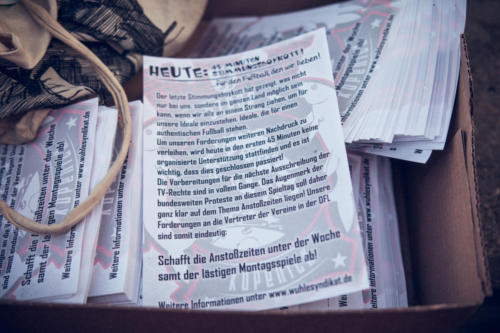 HEUTE: 45 MINUTEN
STIMMUNGSBOYKOTT!
für den Fußball den wir lieben!
Der letzte Stimmungsboykott hat gezeigt, was nicht
nur bei uns, sondern im ganzen Land möglich sein
kann, wenn wir alle an einem Strang ziehen, um für
unsere Ideale einzustehen. Ideale, die für einen
authentischen Fußball stehen.
Um unseren Forderungen weiteren Nachdruck zu
verleihen, wird heute in den ersten 45 Minuten keine
organisierte Unterstützung stattfinden und es ist
wichtig, dass dies geschlossen passiert!
Die Vorbereitungen für die nächste Ausschreibung der
TV-Rechte sind in vollem Gange. Das Augenmerk der
bundesweiten Proteste an diesem Spieltag soll daher
ganz klar auf dem Thema Anstoßzeiten liegen! Unsere
Forderungen an die Vertreter der Vereine in der DFL
sind somit eindeutig:
Schafft die Anstoßzeiten unter der Woche
samt der lästigen Montagsspiele ab!
KÖPENICK
Weitere Informationen unter www.wuhlesyndikat.de